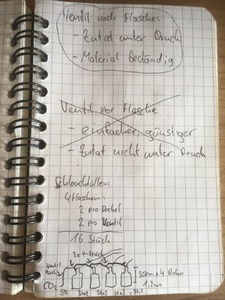 Ventil nach Flasche
- Zutat unter Druck
- Material beständig
Ventil vor Flasche
- einfacher, günstiger
- Zutat nicht unter Druck
Schlauchtüllen:
4 Flaschen:
2 pro Deckel
2 pro Ventil
16 Stück
2x Y-Stück
Ventil
CO₂
30cm x 4 Rohr
1,2m